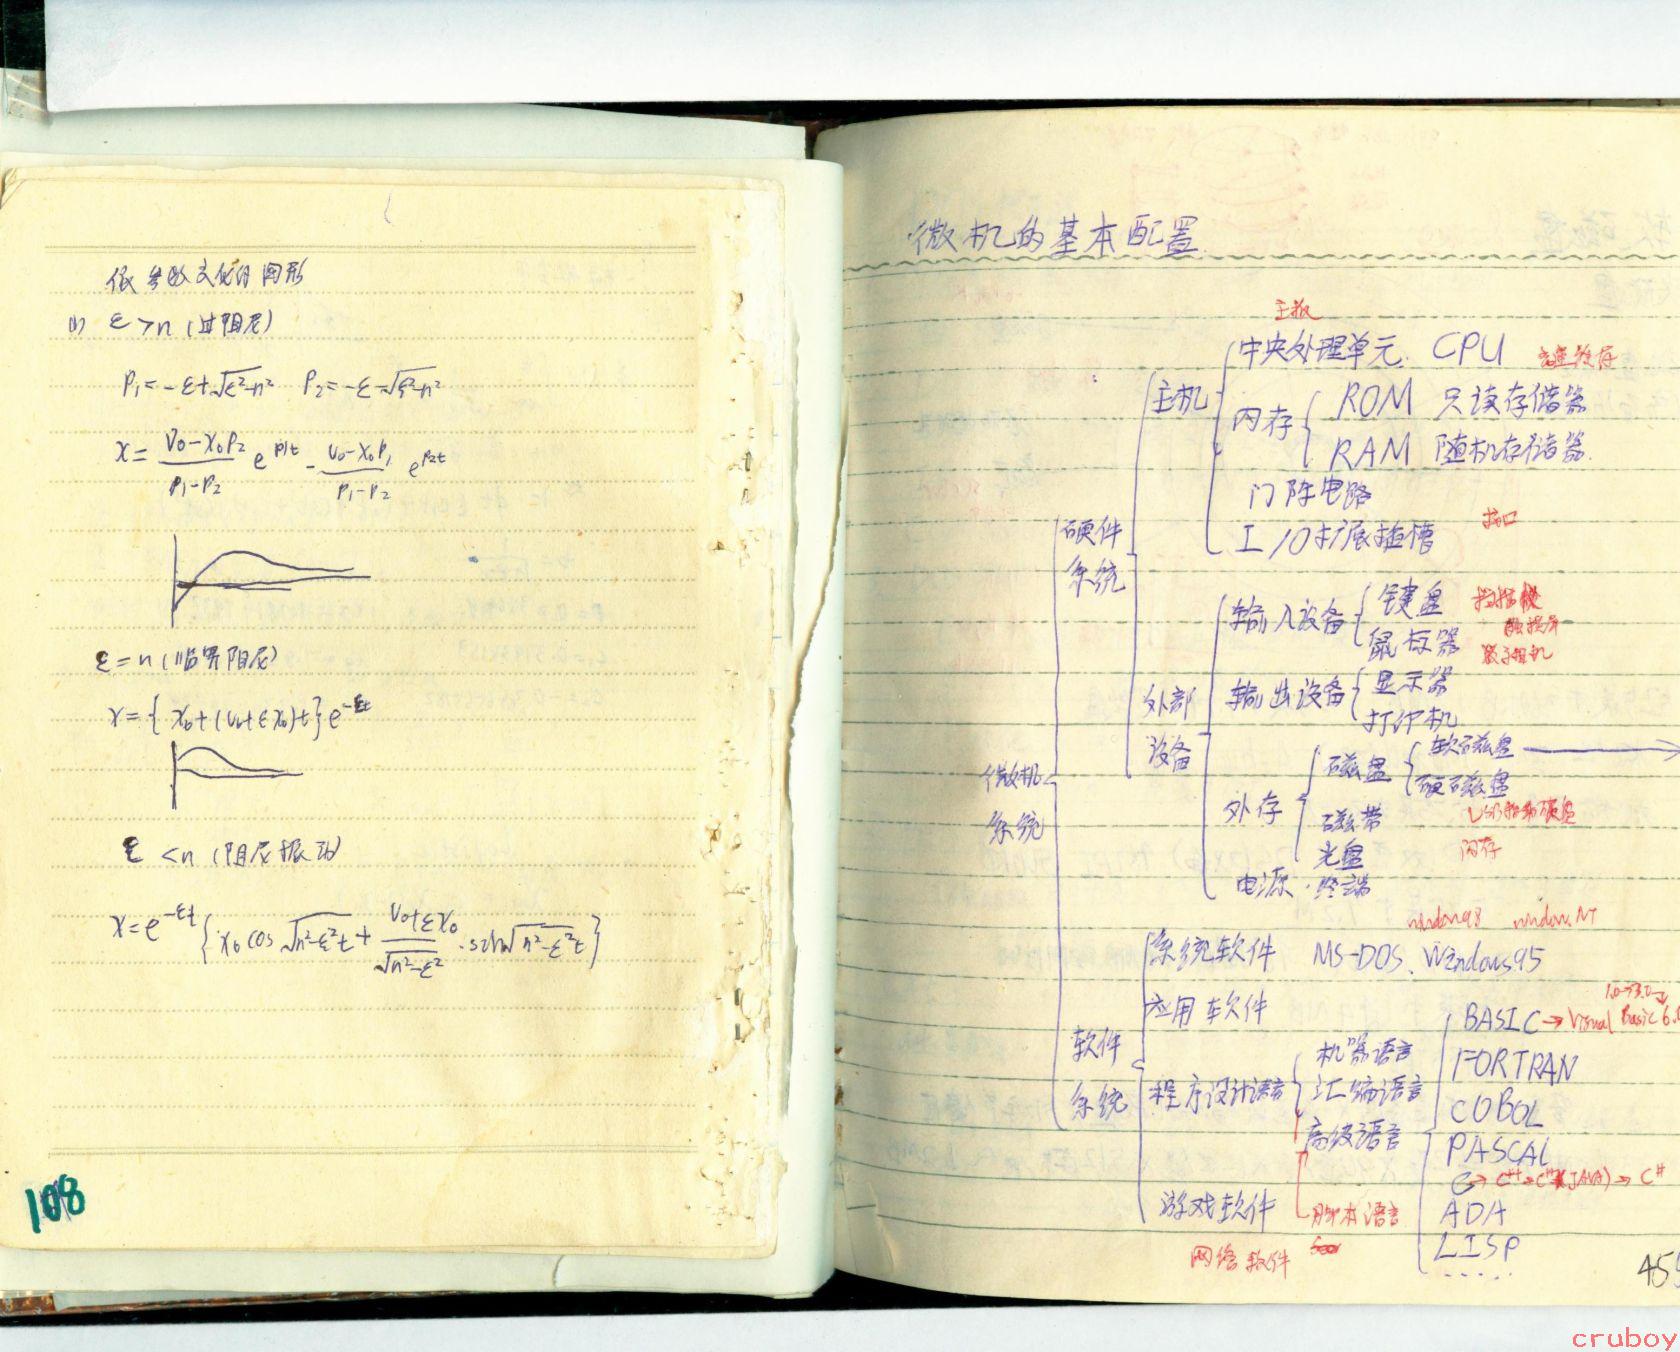 依参数变化的图形
(1) ε>n (过阻尼)
P₁=-ε+√ε²-n² P₂=-ε-√ε²-n²
x= V₀-x₀P₂/P₁-P₂ e^P₁t - V₀-x₀P₁/P₁-P₂ e^P₂t
ε=n (临界阻尼)
x={x₀+(V₀+εx₀)t}e^-εt
ε<n (阻尼振动)
x=e^-εt{x₀cos√n²-ε²t+ V₀+εx₀/√n²-ε² ·sin√n²-ε²t}
108
微机的基本配置
主板
中央处理单元 CPU 高速缓存
主机
内存 ROM 只读存储器
RAM 随机存储器
门阵电路
I/O扩展插槽 接口
硬件系统
输入设备 键盘 扫描仪
鼠标器 触摸屏
数字相机
外部设备
输出设备 显示器
打印机
外存 磁盘 软磁盘
硬磁盘
磁带 USB移动硬盘
光盘 闪存
电源·终端
微机系统
windows98 windows NT
系统软件 MS-DOS、Windows95
应用软件
软件系统
程序设计语言 机器语言
汇编语言
高级语言
脚本语言
1.0→3.0→
BASIC→Visual Basic 6.0
FORTRAN
COBOL
PASCAL
C→C++→C#(JAVA)→C#
ADA
LISP
.....
游戏软件
网络软件
455
cruboy